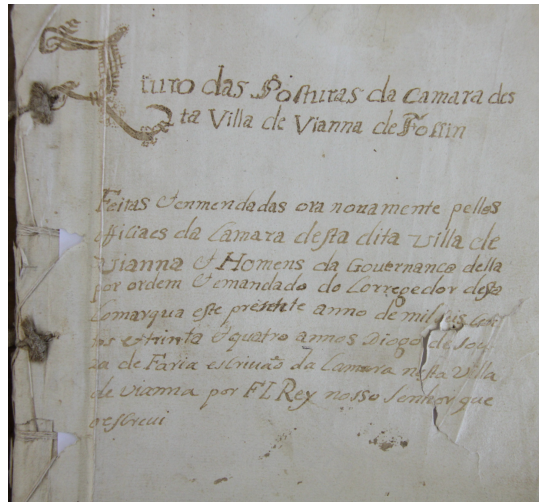 Liuro das Posturas da Camara des
ta Villa de Vianna de Fossim
Feitas & emmendadas ora nouamente pellos
officiaes da Camara desta dita Villa de
Vianna & Homens da Gouernança della
por ordem & mandado do Corregedor desta
Comarqua este presente anno de mil seis
tos e trinta & quatro annos Diogo de Sou
za de Faria escriuão da Camara nesta Villa
de Vianna por El Rey nosso senhor que
o escreui